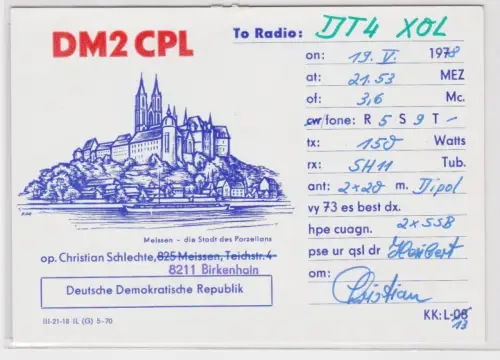 DM2CPL
To Radio: DT4 XOL
on: 19. V. 1978
at: 21.53 MEZ
of: 3,6 Mc.
cw/fone: R 5 S 9 T -
tx: 150 Watts
rx: SH11 Tub.
ant: 2×20 m. Dipol
vy 73 es best dx.
hpe cuagn. 2×SSB
pse ur qsl dr
om: Christian
KK: L-08
13
Meissen - die Stadt des Porzellans
op. Christian Schlechte, 825 Meissen, Teichstr. 4
8211 Birkenhain
Deutsche Demokratische Republik
III-21-18 IL (G) 5-70